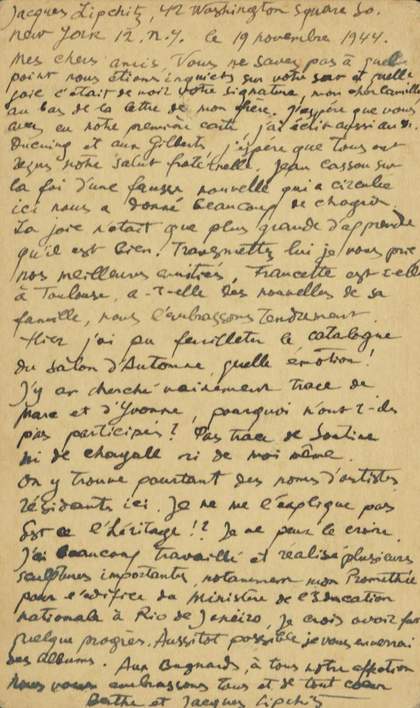 Jacques Lipchitz, 42 Washington Square So.
New York 12. N.Y. le 19 novembre 1944.
Mes chers amis, Vous ne savez pas à quel
point nous étions inquiets sur votre sort et quelle
joie c'était de voir votre signature, mon cher Camille
au bas de la lettre de mon frère. J'espère que vous
avez eu notre première carte, j'ai écrit aussi au Dr.
Ducuing et aux Gilberts, j'espère que tous ont
reçus notre salut fraternelle. Jean Cassou sur
la foi d'une fausse nouvelle qui a circulée
ici nous a donné beaucoup de chagrin.
La joie n'était que plus grande d'apprendre
qu'il est bien. Transmettez lui je vous prie
nos meilleures amitiés. Francette est-elle
à Toulouse, a-t-elle des nouvelles de sa
famille, nous l'embrassons tendrement.
Hier j'ai pu feuilleter le catalogue
du Salon d'Automne, quelle émotion!
J'y ai cherché vainement trace de
Marc et d'Yvonne, pourquoi n'ont-ils
pas participés? Pas trace de Soutine
ni de Chagall ni de moi même.
On y trouve pourtant des noms d'artistes
résidants ici. Je ne me l'explique pas
Est ce l'héritage!? Je ne peux le croire.
J'ai beaucoup travaillé et réalisé plusieurs
sculptures importantes, notamment mon Promethée
pour l'édifice du Ministère de l'Education
nationale à Rio de Janeiro, Je crois avoir fait
quelque progrès. Aussitot possible je vous enverrai
des albums. Aux à tous notre affection
Nous vous embrassons tous et de tout coeur
Berthe et Jacques Lipchitz